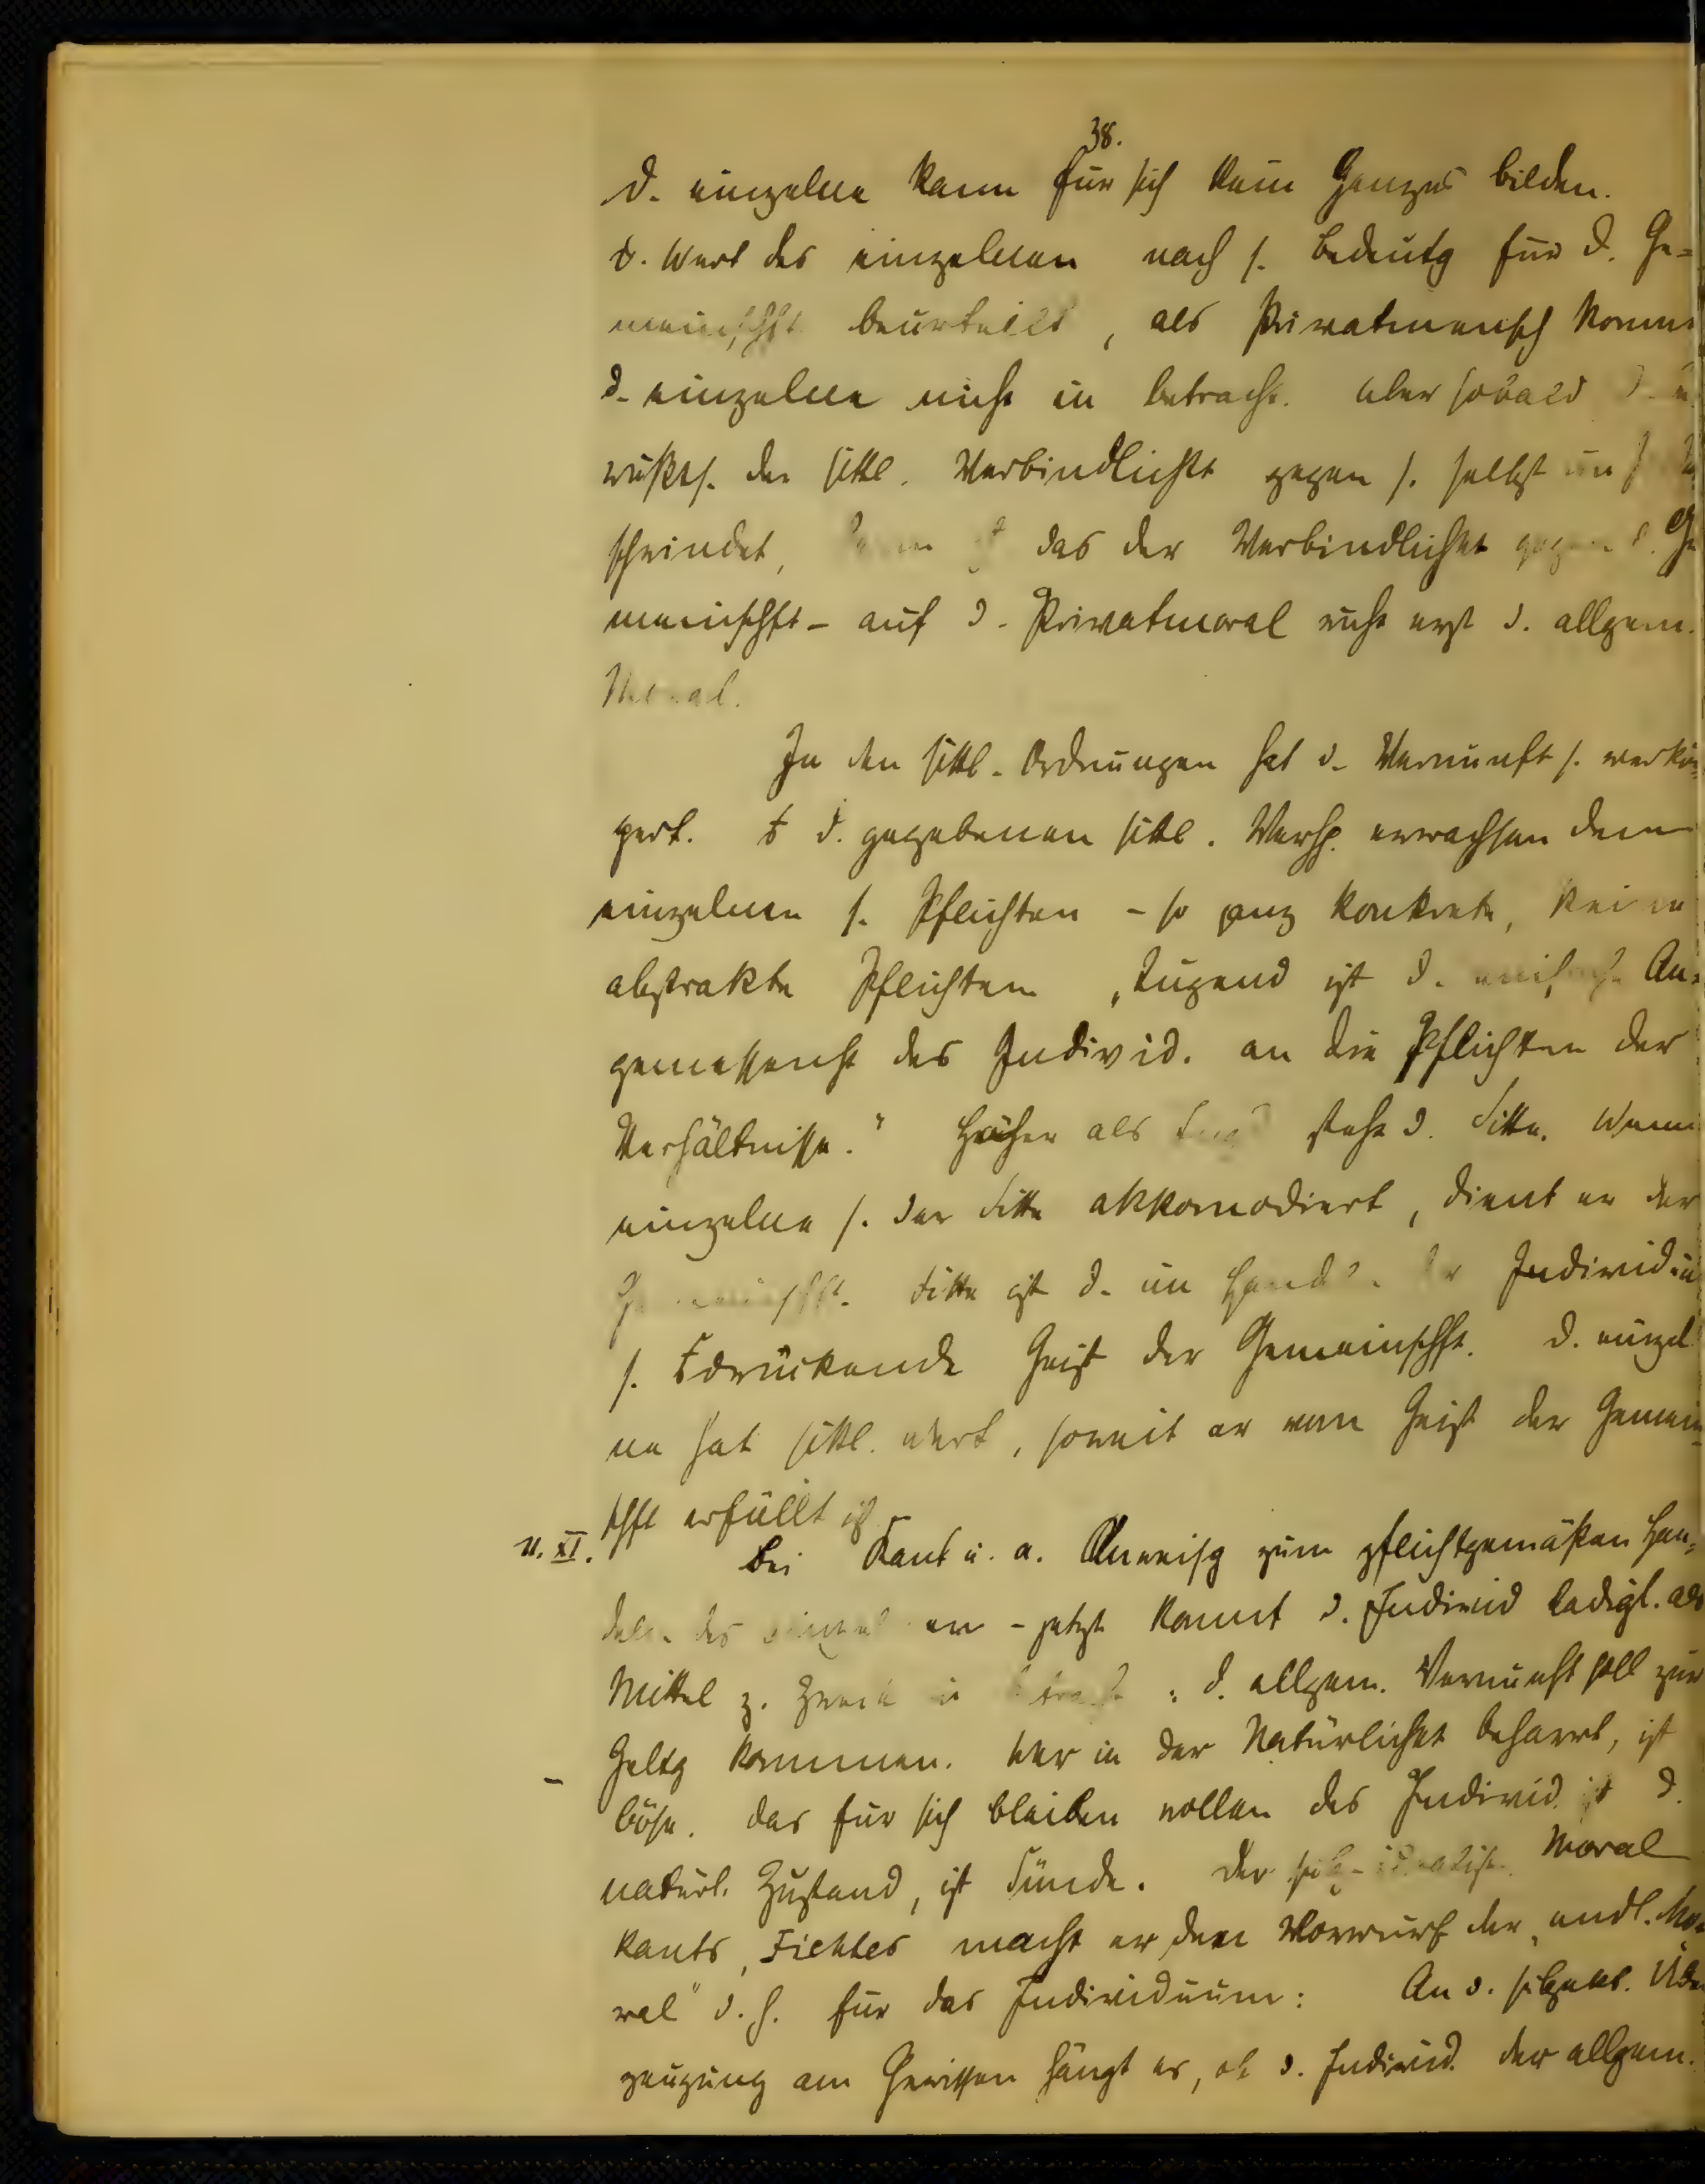 38.
D. einzelne kann für sich kein Ganzes bilden.
D. Wert des einzelnen nach s. Bedeutg für d. Ge=
meinschft beurteilt, als Privatmensch kommt
d. einzelne nicht in betracht. Aber sobald d.
wußts. der sittl. Verbindlichkt gegen s. selbst
schwindet, das der Verbindlichkt gegen d. Ge
meinschft - auf d. Privatmoral ruht erst d. allgem.
Moral.
In den sittl. Ordnungen hat d. Vernunft s. verkör=
pert. d. gegebenen sittl. Verh. erwachsen dem
einzelnen s. Pflichten - so ganz konkrete, keine
abstrakte Pflichten „Tugend ist d. einfache An=
gemessenht des Individ. an die Pflichten der
Verhältnisse." Höher als steht d. Sitte. Wenn
einzelne s. der Sitte akkomodiert, dient er der
Gemeinschft. Sitte ist d. im Handeln der Individuen
s. drückende Geist der Gemeinschft. D. einzel
ne hat sittl. Wert, soweit er vom Geist der Gemein=
schft erfüllt ist
11. XI.
Bei Kant u. a. Anweisg zum pflichtgemäßen Han=
deln des einzelnen - jetzt kommt d. Individ ledigl. als
Mittel z. Zweck in betracht: d. allgem. Vernunft soll zur
Geltg kommen. Wer in der Natürlichkt beharrt, ist
böse. Das für sich bleiben wollen des Individ. ist d.
natürl. Zustand, ist Sünde. Der Moral
Kants, Fichtes macht er den Vorwurf der „endl. Mo=
ral" d. h. für das Individuum: An d. Über
zeugung am Gewissen hängt es, ob d. Individ. der allgem.